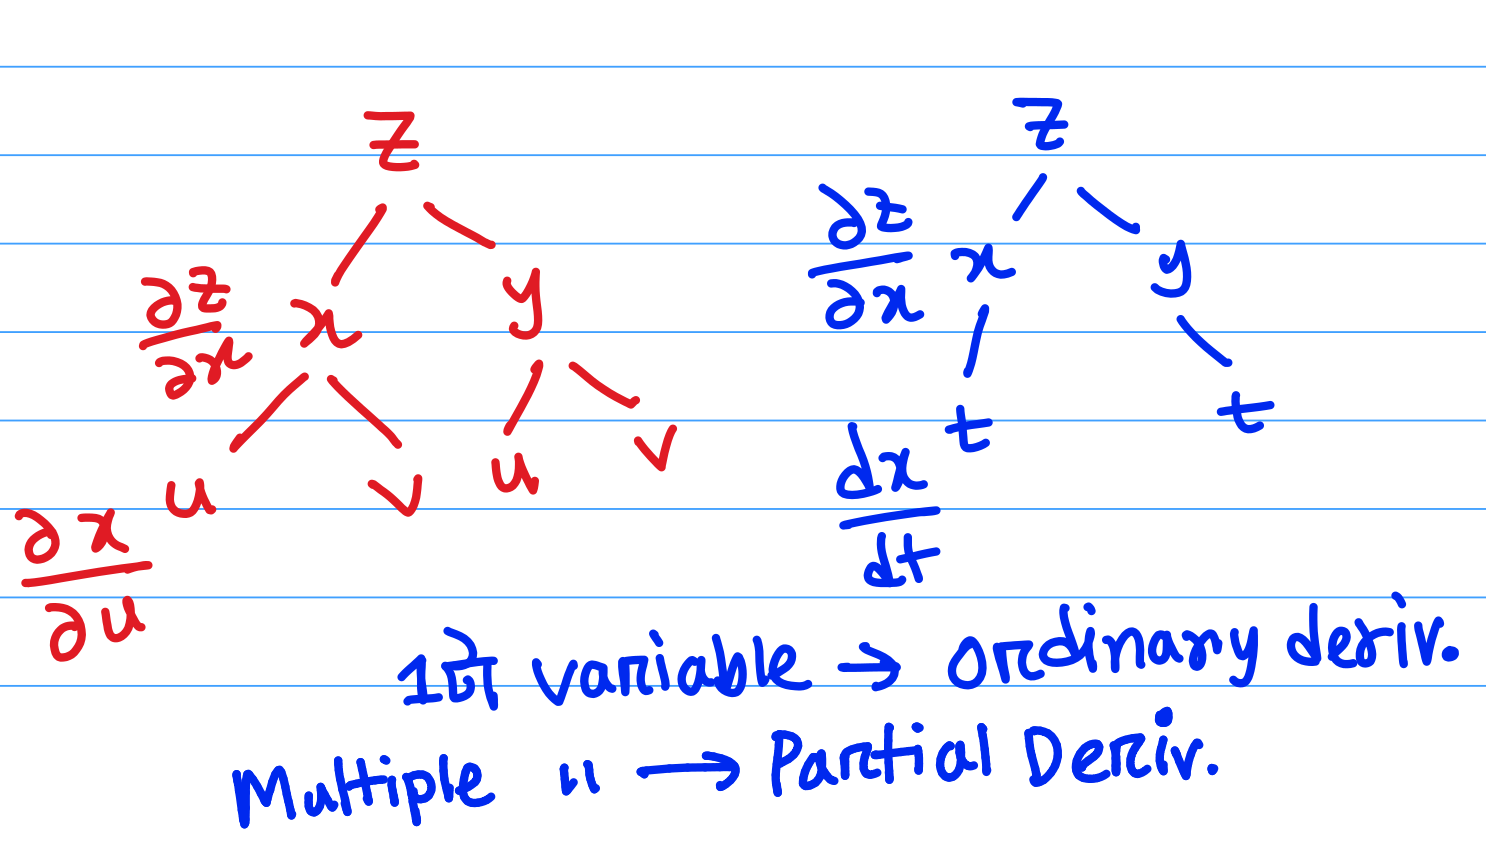 z
x y
∂z/∂x
u v u v
∂x/∂u
z
∂z/∂x
x y
t t
dx/dt
1টা variable → ordinary deriv.
Multiple " → Partial Deriv.